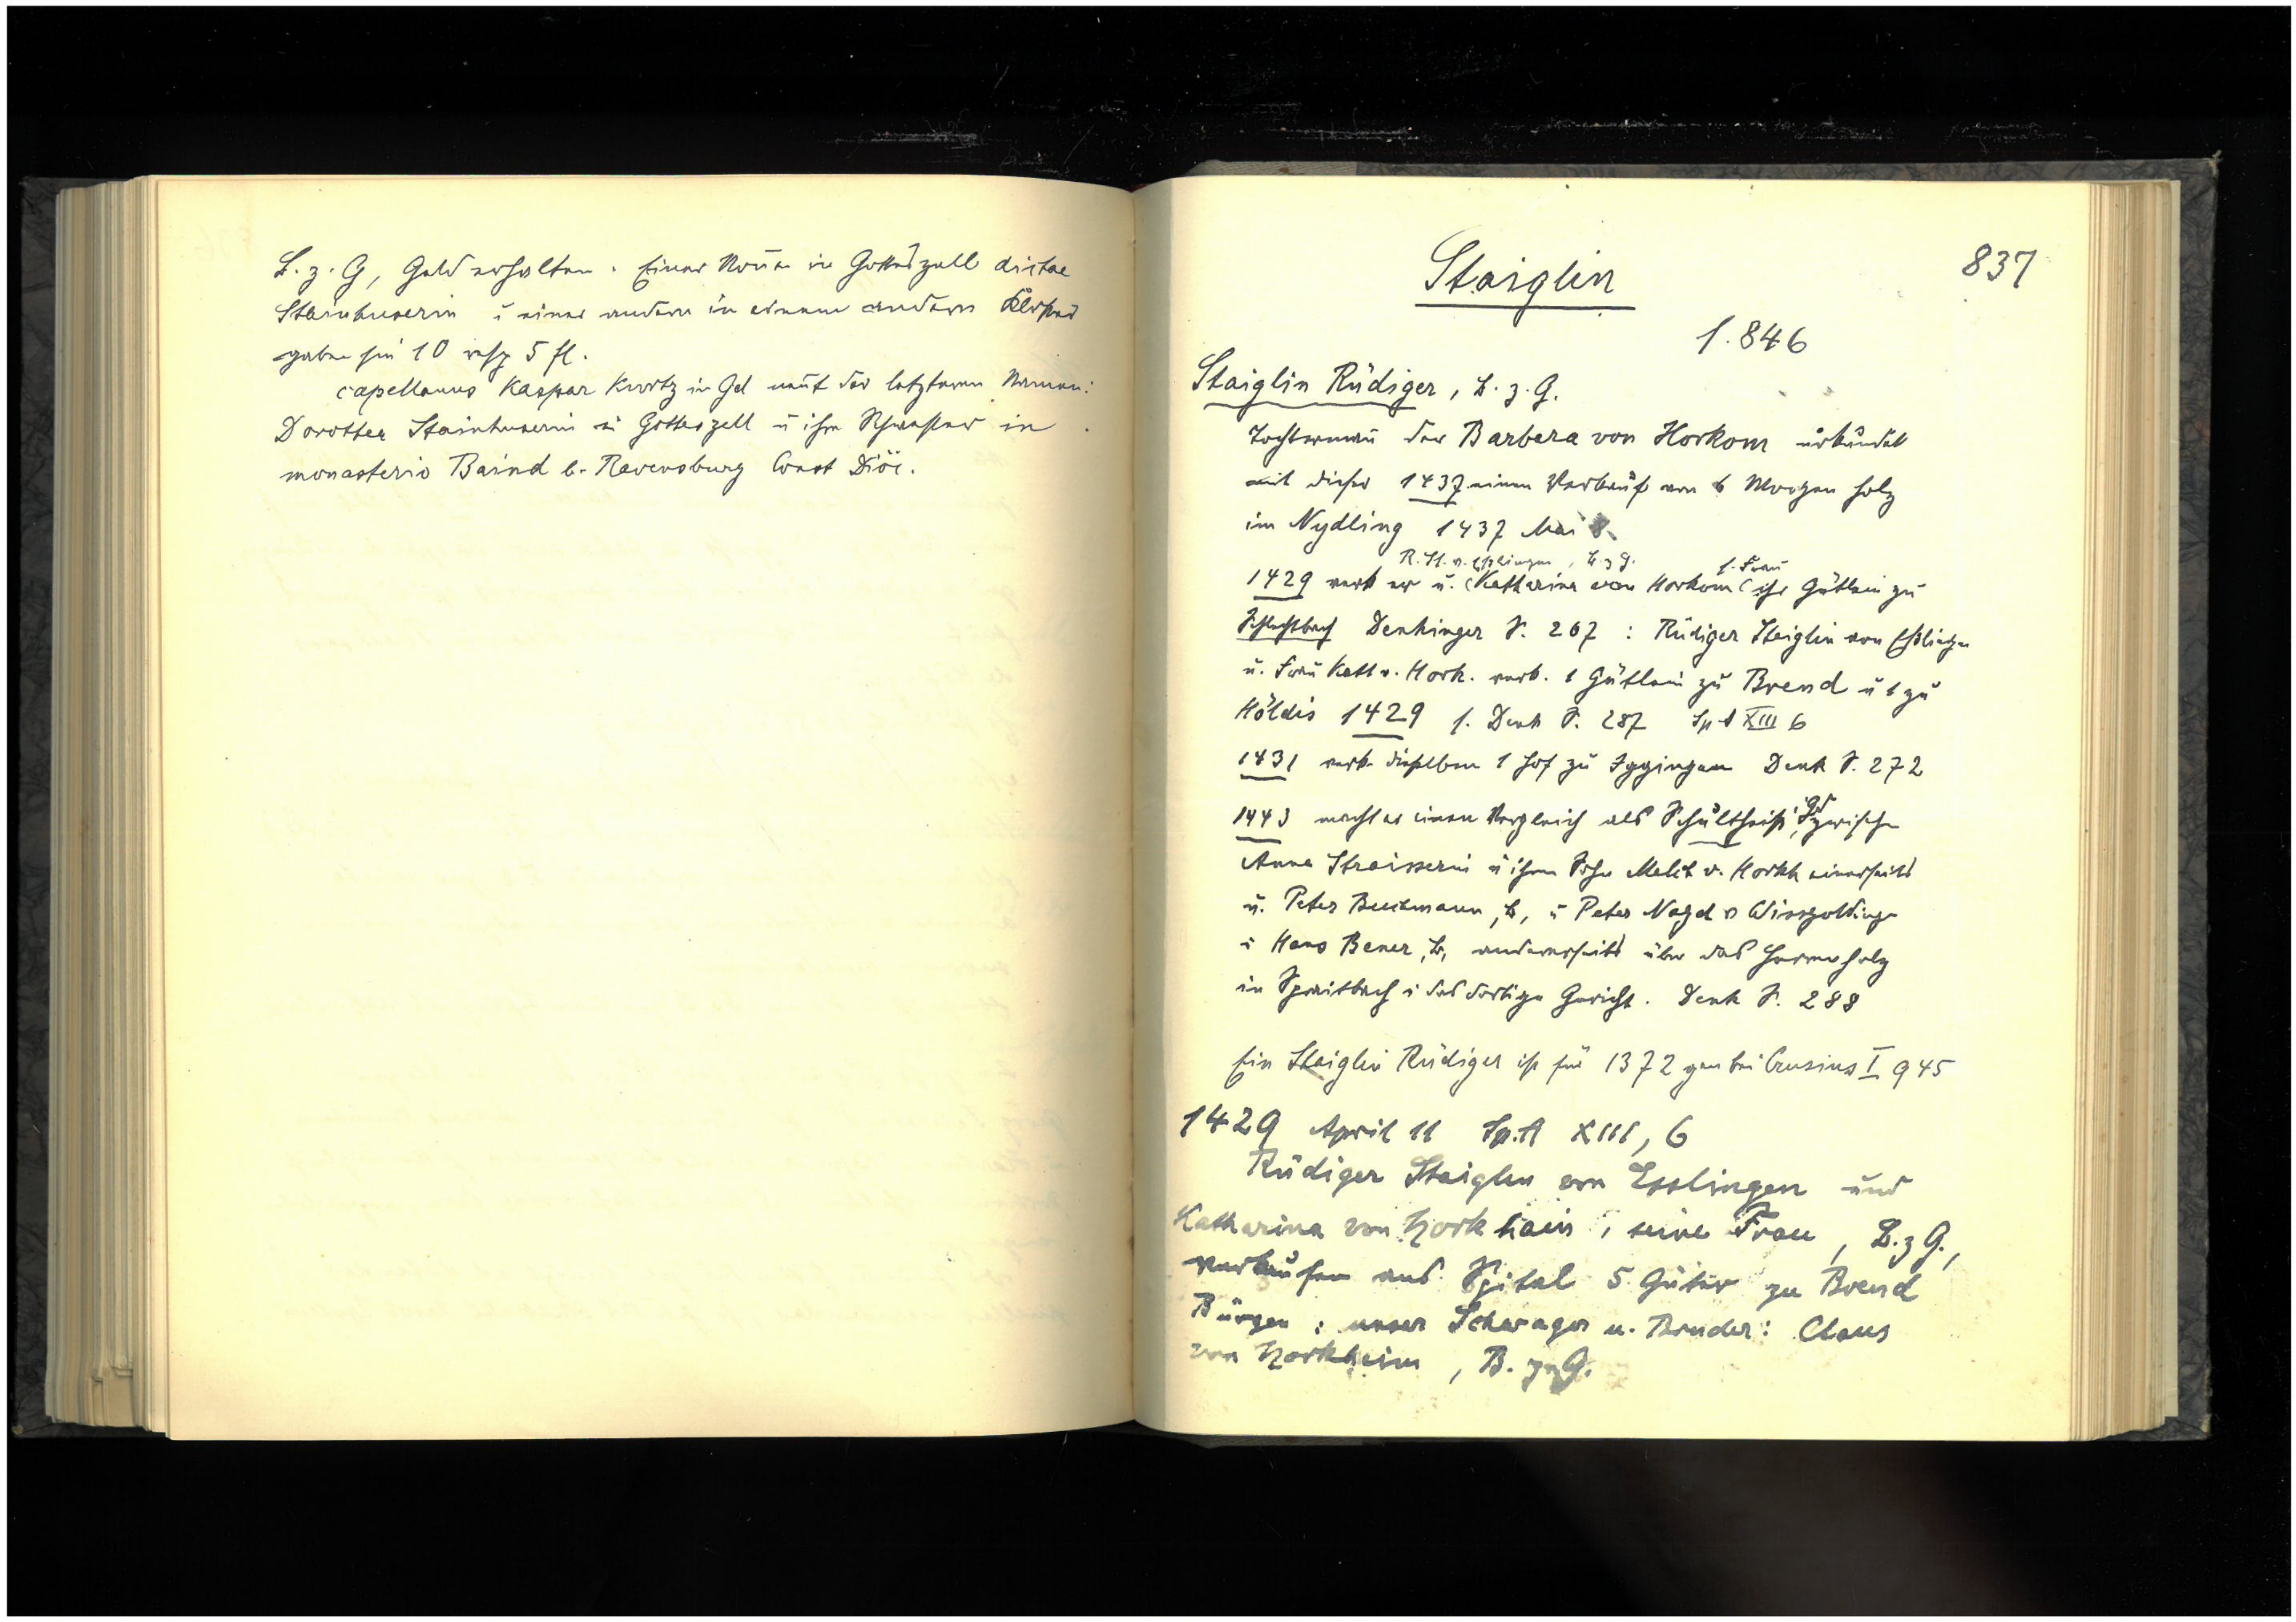 B. z. G, Geld erhalten. Einer Nonne in Gotteszell dictae
Stainhuserin u einer andern in einem andern Kloster
gaben sie 10 resp 5 fl.
capellanus Kaspar Kurtz in Gd nennt der letzteren Namen:
Dorothea Stainhuserin in Gotteszell u ihre Schwester in
monasterio Baind b. Ravensburg Const Diöc.
837
Staiglin
s. 846
Staiglin Rüdiger, B. z. G.
Tochtermann der Barbara von Horkom urkundet
mit dieser 1437 einen Verkauf von 6 Morgen Holz
im Nydling 1437 Mai 8.
R. St. v. Esslingen, B. z G. s. Frau
1429 verk er u. Katharina von Horkom ihr Gütlein zu
Schlechtbach Denkinger S. 267 : Rüdiger Staiglin von Esslingen
u. Frau Kath v. Hork. verk. 1 Gütlein zu Brend u 1 zu
Höldis 1429 s. Denk S. 287 Sp A XIII 6
1431 verk dieselben 1 Hof zu Iggingen Denk S. 272
1443 macht er einen Vergleich als Schultheiß, Gd zwischen
Anna Straisserin u ihrem Sohn Melch v. Horkh einerseits
u. Peter Buchmann, B, u Peter Nagel v Wissgoldingen
u Hans Bener, B, anderseits über das Herrenholz
in Spraitbach u das dortige Gericht. Denk S. 288
Ein Staiglin Rüdiger ist für 1372 gen bei Crusius I 945
1429 April 11 Sp.A XIII, 6
Rüdiger Staiglen von Esslingen und
Katharina von Horkhain, seine Frau, B. z G.,
verkaufen ans Spital 5 Güter zu Brend
Bürgen: unser Schwager u. Bruder: Claus
von Horkheim, B. zu G.